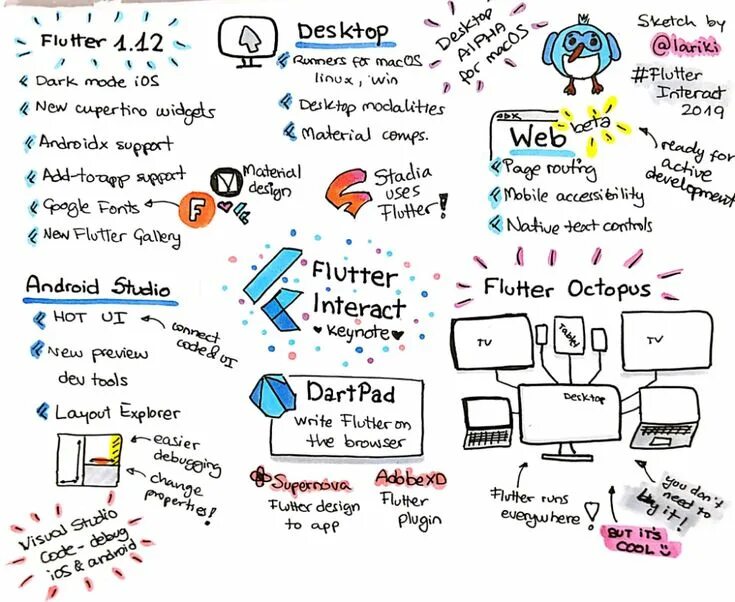 Flutter 1.12
Dark mode iOS
New cupertino widgets
Androidx support
Add-to-app support
Google Fonts
New Flutter Gallery
F
Material
design
Desktop
Runners for macOS
linux, win
Desktop modalities
Material comps.
Desktop
AlPHA
for macOS
Sketch by
@lariki
#Flutter
Interact
2019
Web
beta
Page routing
Mobile accessibility
Native text controls
ready for
active
development
Stadia
uses
Flutter!
Android Studio
HOT UI
connect
code & UI
New preview
dev tools
Layout Explorer
easier
debugging
change
properties!
Visual Studio
Code - debug
iOS & android
Flutter
Interact
Keynote
DartPad
write Flutter on
the browser
Supernova
Flutter design
to app
AdobeXD
Flutter
plugin
Flutter Octopus
TV
Tablet
TV
Desktop
Flutter runs
everywhere!
you don't
need to
buy it!
BUT iT'S
COOL